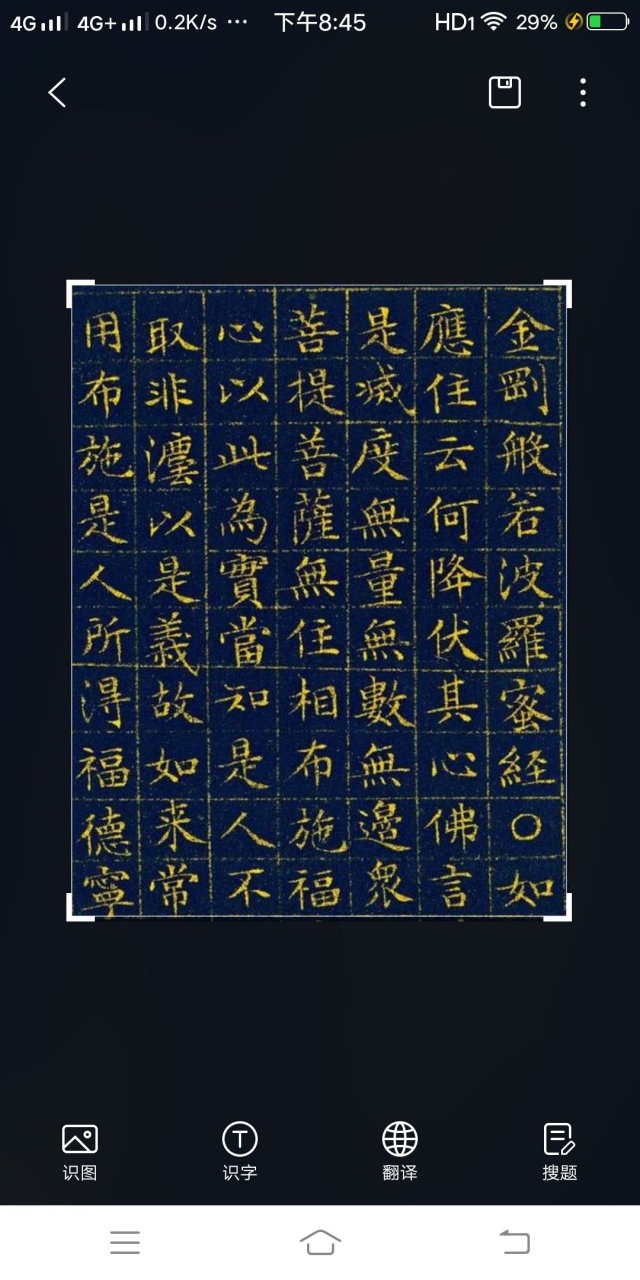 4G 4G+ 0.2K/s ··· 下午8:45 HD1 29%
金剛般若波羅蜜経〇如
應住云何降伏其心佛言
是滅度無量無數無邊衆
菩提善薩無住相布施福
心以此為實當知是人不
取非灋以是義故如来常
用布施是人所得福德寧
识图 识字 翻译 搜题